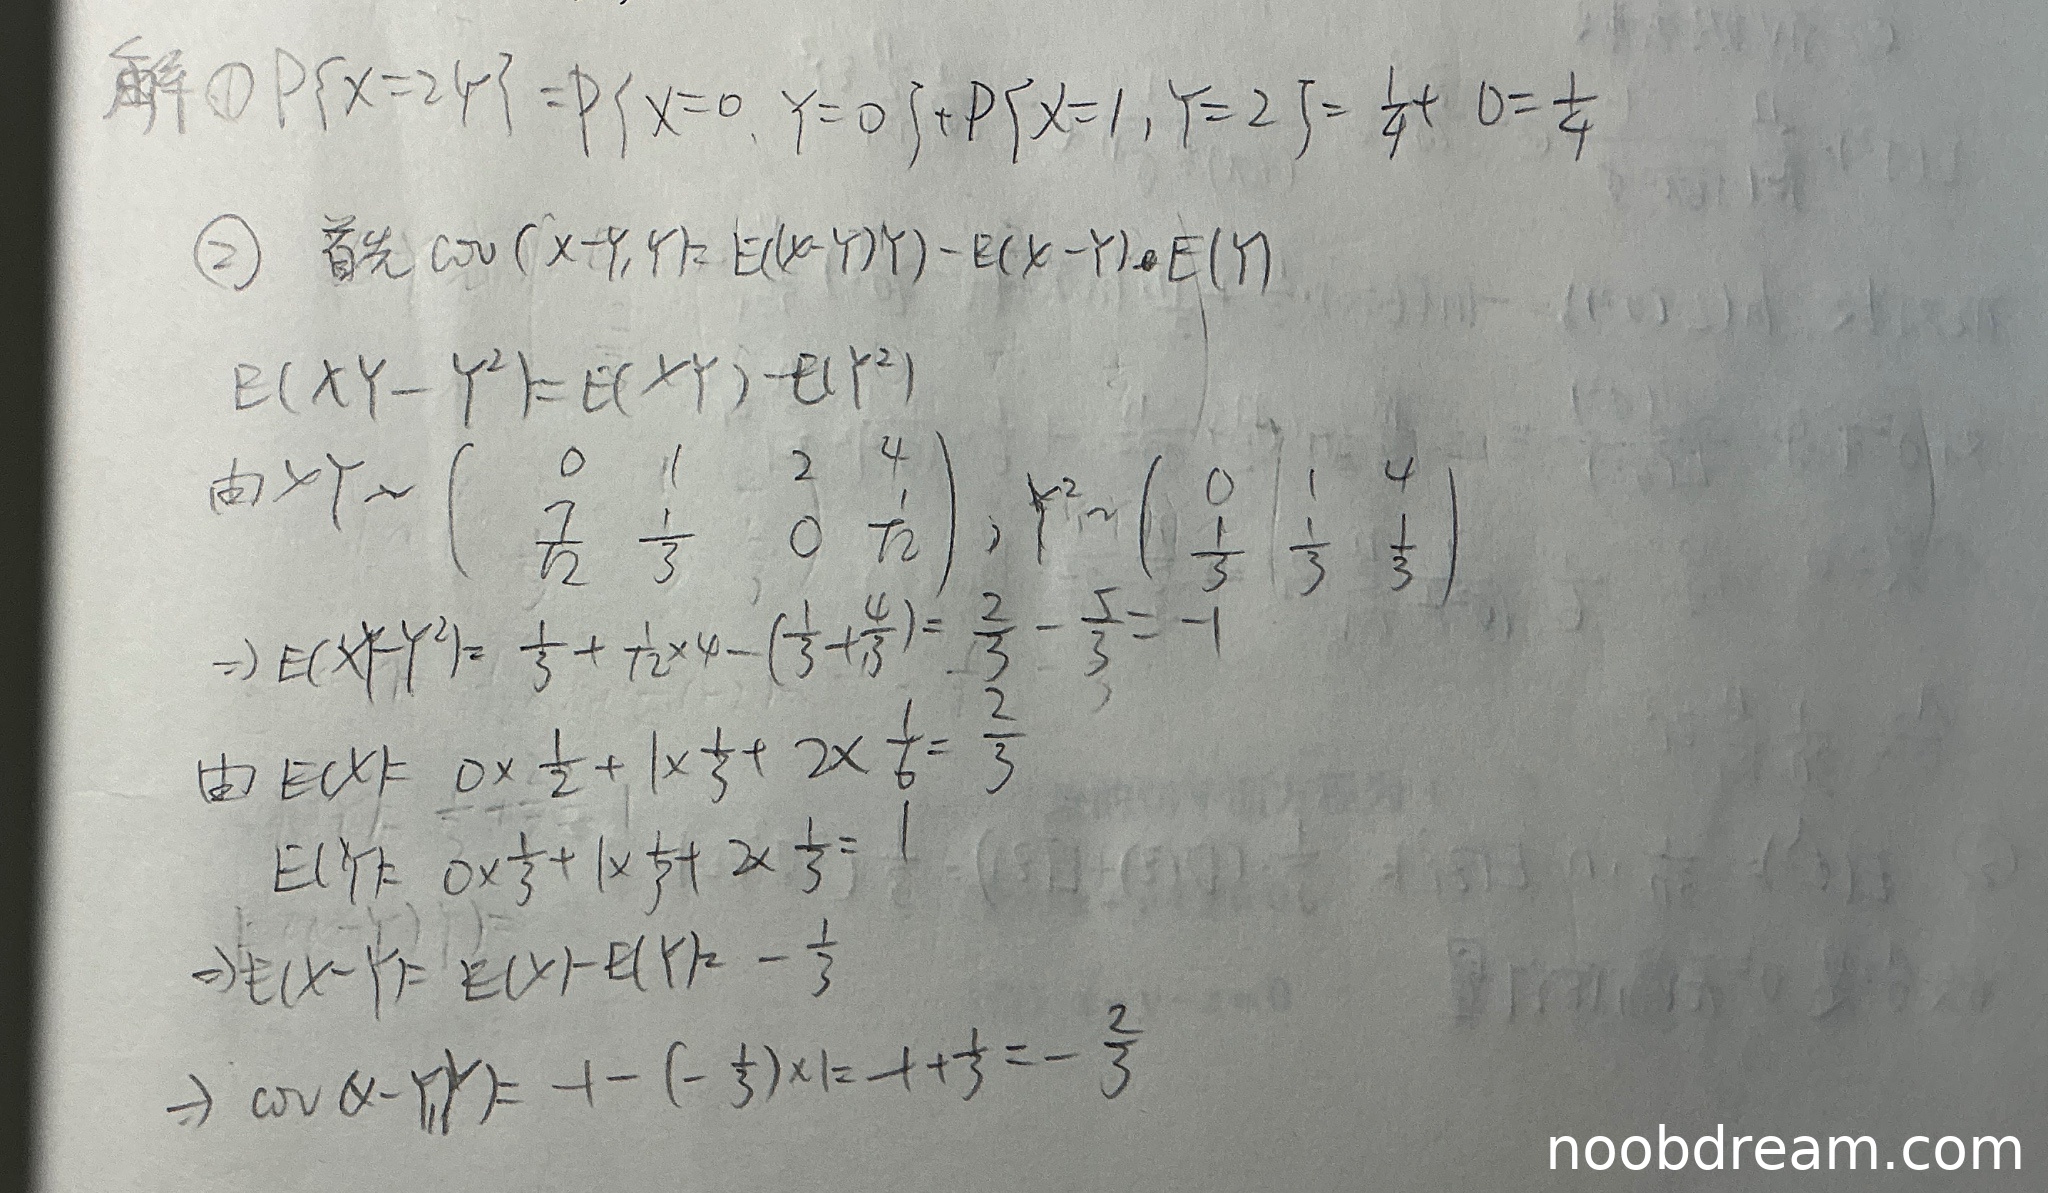 解 ① P{X=2Y} = P{X=0, Y=0}+P{X=1, Y=2}= 1/4 + 0 = 1/4
② 首先 cov(X-Y,Y)= E((X-Y)Y) - E(X-Y)·E(Y)
E(XY-Y²)=E(XY)-E(Y²)
由XY~ ( 0 1 2 4 ; 7/12 1/3 0 1/12 ), Y²~ ( 0 1 4 ; 1/3 1/3 1/3 )
⇒ E(XY-Y²)= 1/3 + 1/12×4 - (1/3+4/3) = 2/3 - 5/3 = -1
由 E(X)= 0×1/2 + 1×1/3 + 2×1/6 = 2/3
E(Y)= 0×1/3 + 1×1/3 + 2×1/3 = 1
⇒ E(X-Y)= E(X)-E(Y)= -1/3
⇒ cov(X-Y,Y)= -1-(-1/3)×1= -1+1/3 = -2/3
noobdream.com